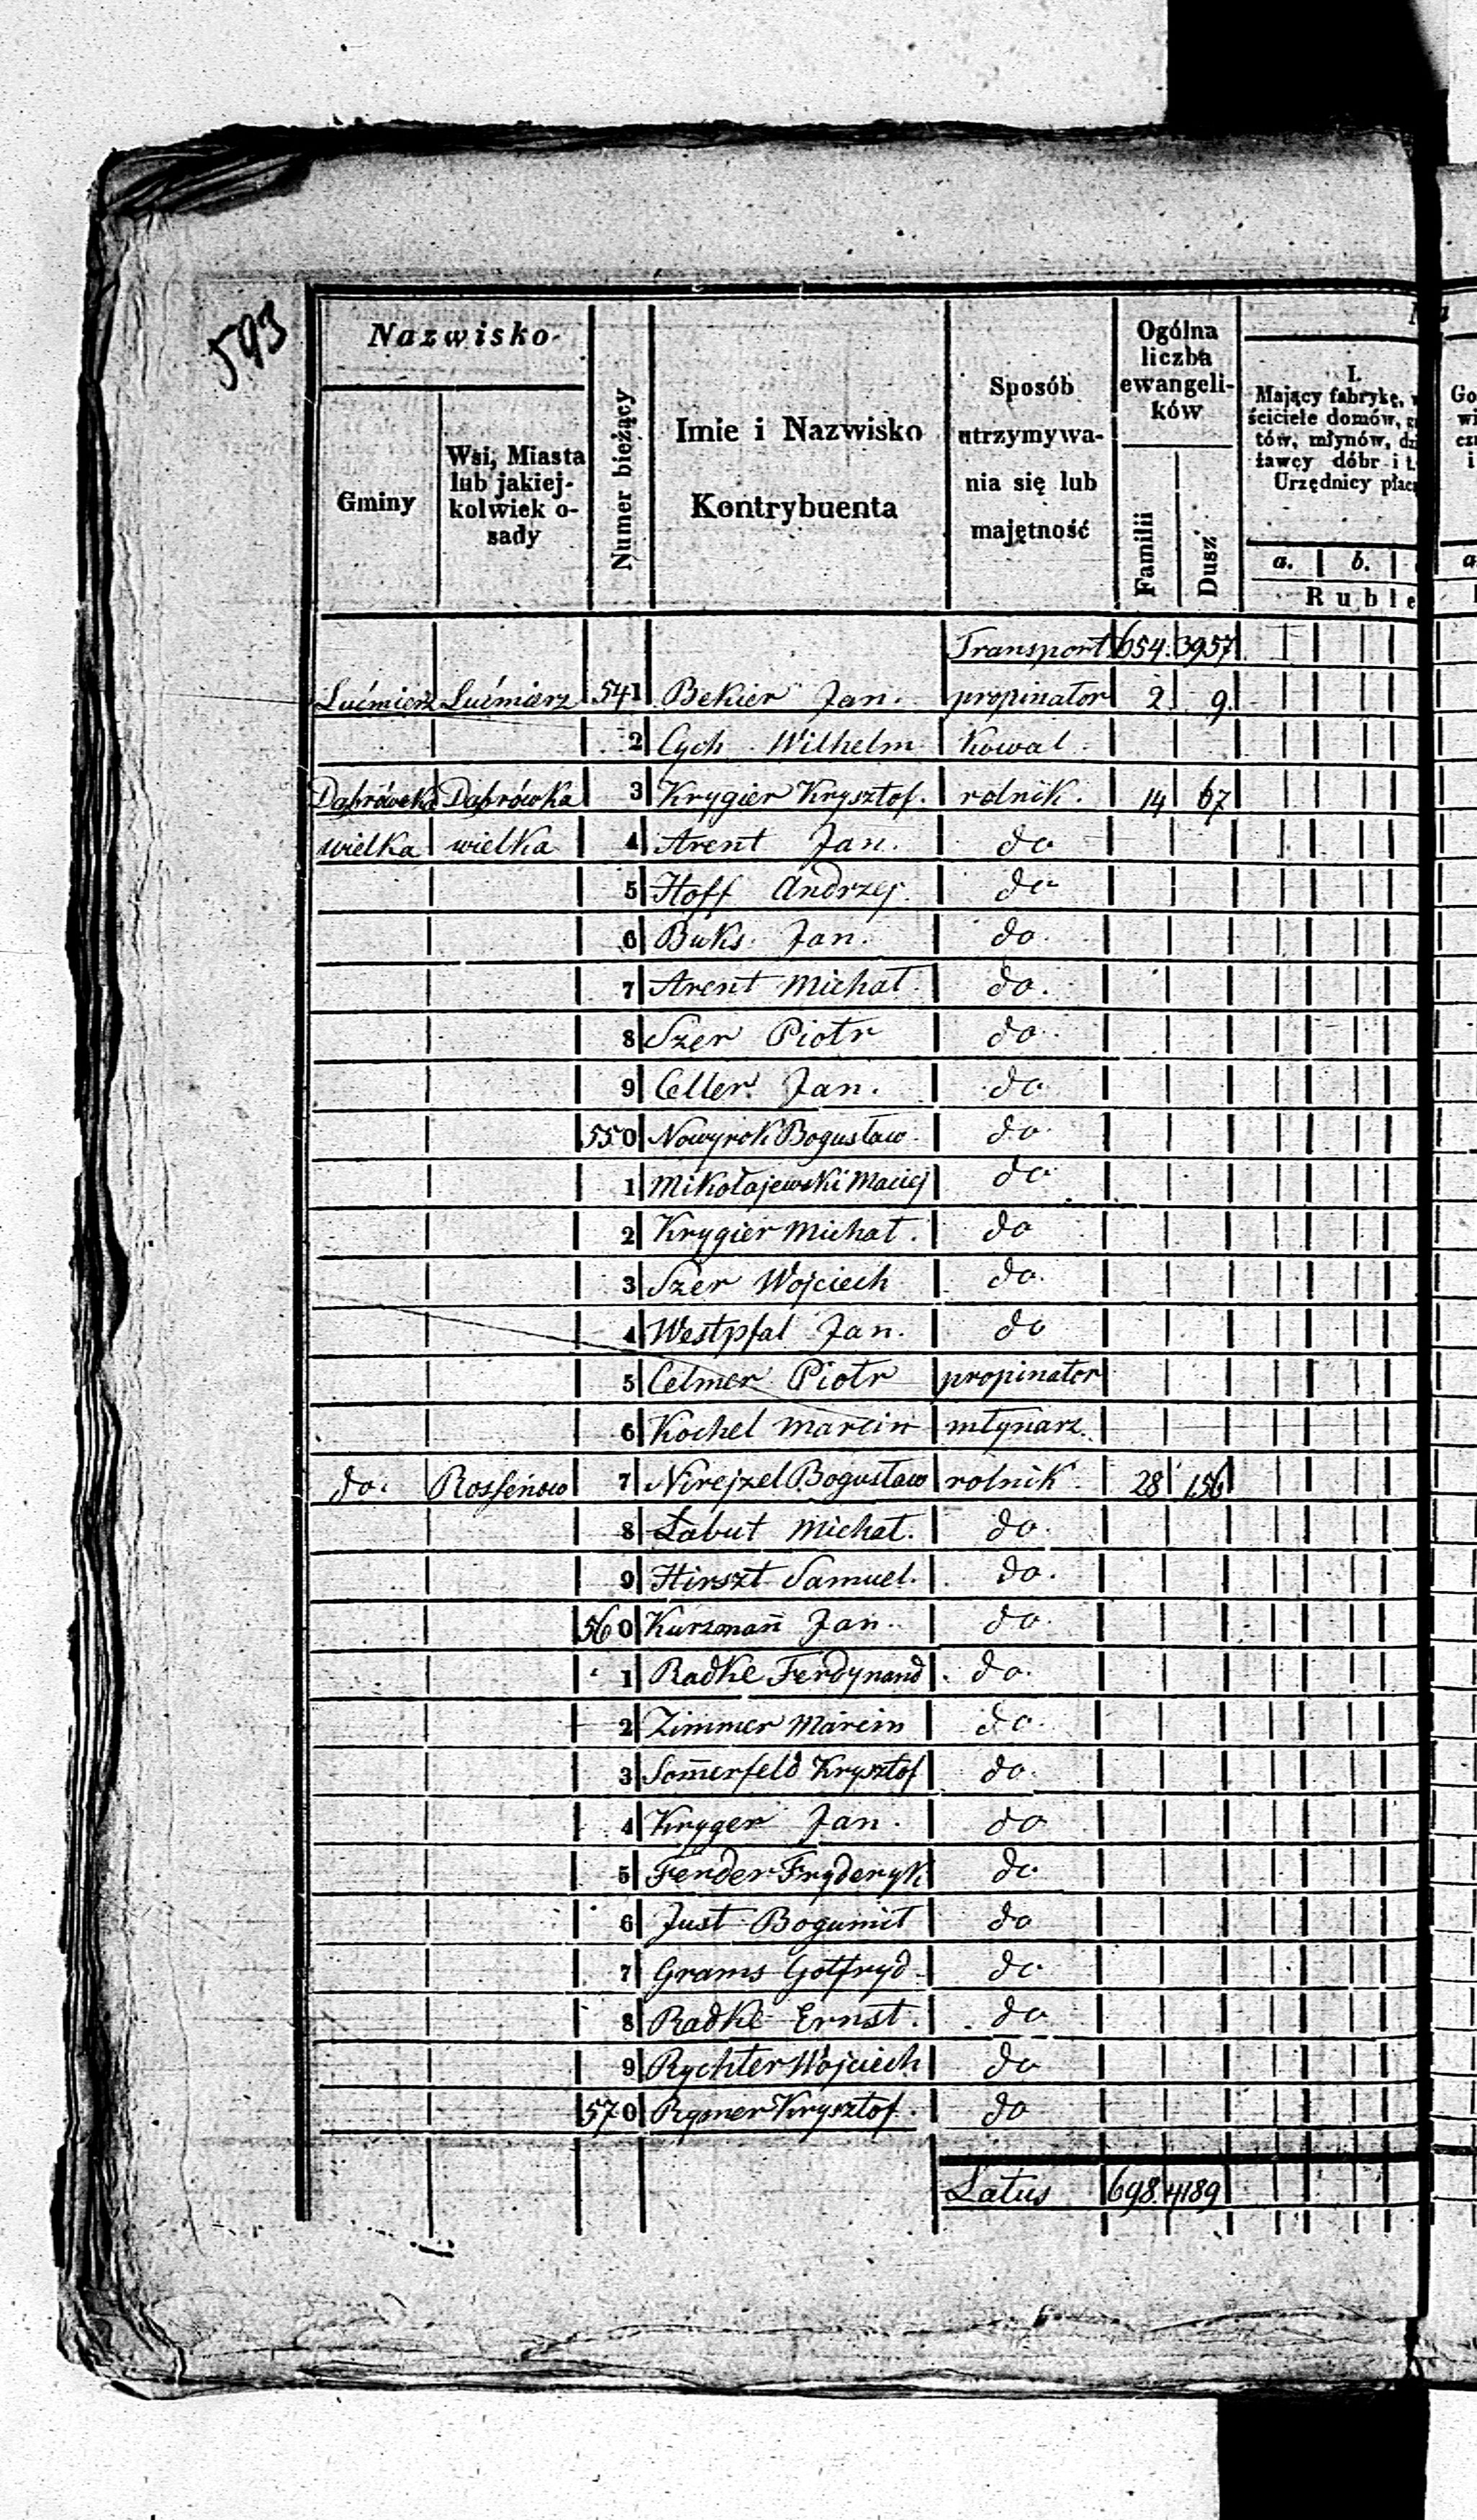 593
Nazwisko
Gminy
Wsi, Miasta lub jakiej-kolwiek o-sady
Numer bieżący
Imie i Nazwisko Kontrybuenta
Sposób utrzymywa-nia się lub majętność
Ogólna liczba ewangeli-ków
Familii
Dusz
I.
Mający fabrykę,
ściciele domów,
tów, młynów,
żawcy dóbr i
Urzędnicy
a. b.
Ruble
Transport 654. 3957
Lućmierz Lućmierz 541 Bekier Jan. propinator 2 9
2 Cych Wilhelm Kowal
Dąbrówka Dąbrówka 3 Krygier Krysztof. rolnik. 14 67
wielka wielka 4 Arent Jan. do
5 Hoff Andrzej. do
6 Buks Jan. do.
7 Arent Michał. do.
8 Szer Piotr do
9 Celler Jan. do
550 Nowyrok Bogusław do
1 Mikołajewski Maciej do
2 Krygier Michał. do
3 Szer Wojciech do.
4 Westpfal Jan. do
5 Celmer Piotr propinator
6 Kochel Marcin młynarz.
do. Rossenow 7 Nirejzel Bogusław rolnik 28 156
8 Łabut Michał. do.
9 Hirszt Samuel. do.
560 Kurzman̄ Jan. do
1 Radke Ferdynand do.
2 Zimmer Marcin do.
3 Som̄erfeld Krysztof do.
4 Kryger Jan. do
5 Fender Fryderyk do
6 Just Bogumił do
7 Grams Gotfryd do
8 Radke Ernst. do
9 Rychter Wojciech do
570 Rymer Krysztof. do
Latus 698. 4189